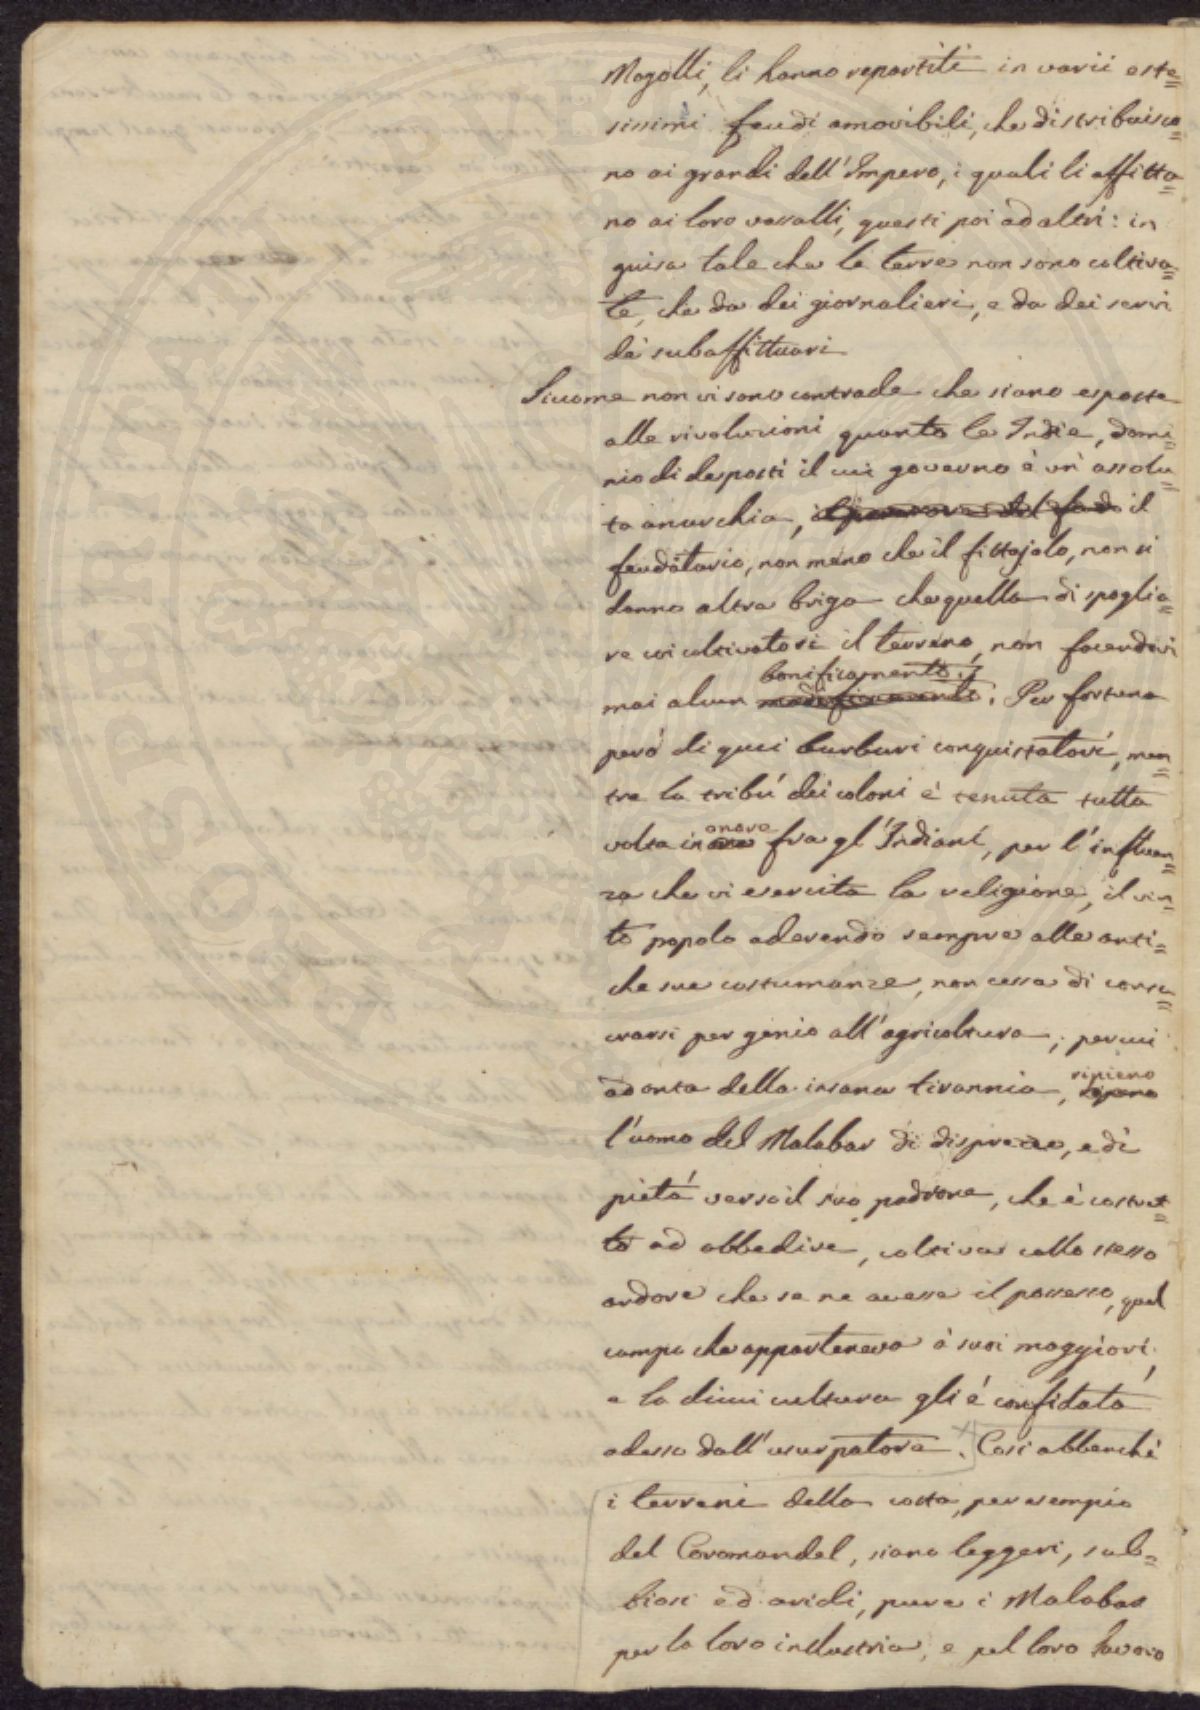 Mogolli, li hanno repartiti in varii este=
sissimi feudi amovibili, che distribuisco=
no ai grandi dell'Impero, i quali li affitta=
no ai loro vassalli, questi poi ad altri: in
guisa tale che le terre non sono coltiva=
te, che da dei giornalieri, e da dei servi
dè subaffittuari
Siccome non vi sono contrade che siano esposte
alle rivoluzioni quanto le Indie, domi=
nio di despoti il cui governo è un'assolu=
ta anarchia, il
feudatario, non meno che il fittajolo, non si
danno altra briga che quella di spoglia=
re coi coltivatori il terreno, non facendovi
bonificamento
mai alcun modificamento. Per fortuna
però di quei barbari conquistatori, men=
tre la tribù dei coloni è tenuta tutta
onore
volta in fra gl'Indiani, per l'influen=
za che vi esercita la religione, il vin=
to popolo aderendo sempre alle anti=
che sue costumanze, non cessa di consa=
crarsi per genio all'agricoltura; per cui
ripieno
ad onta della insana tirannia,
l'uomo del Malabar di disprezzo, e di
pietà verso il suo padrone, che è costret=
to ad obbedire, coltiva collo stesso
ardore che se ne avesse il possesso, quel
campo che apparteneva à suoi maggiori,
e la di cui cultura gli è confidata
adesso dall'usurpatore. Così abbenchè
i terreni della costa, per esempio
del Coromandel, siano leggeri, sab=
biosi ed aridi, pure i Malabar
per la loro industria, e pel loro lavoro